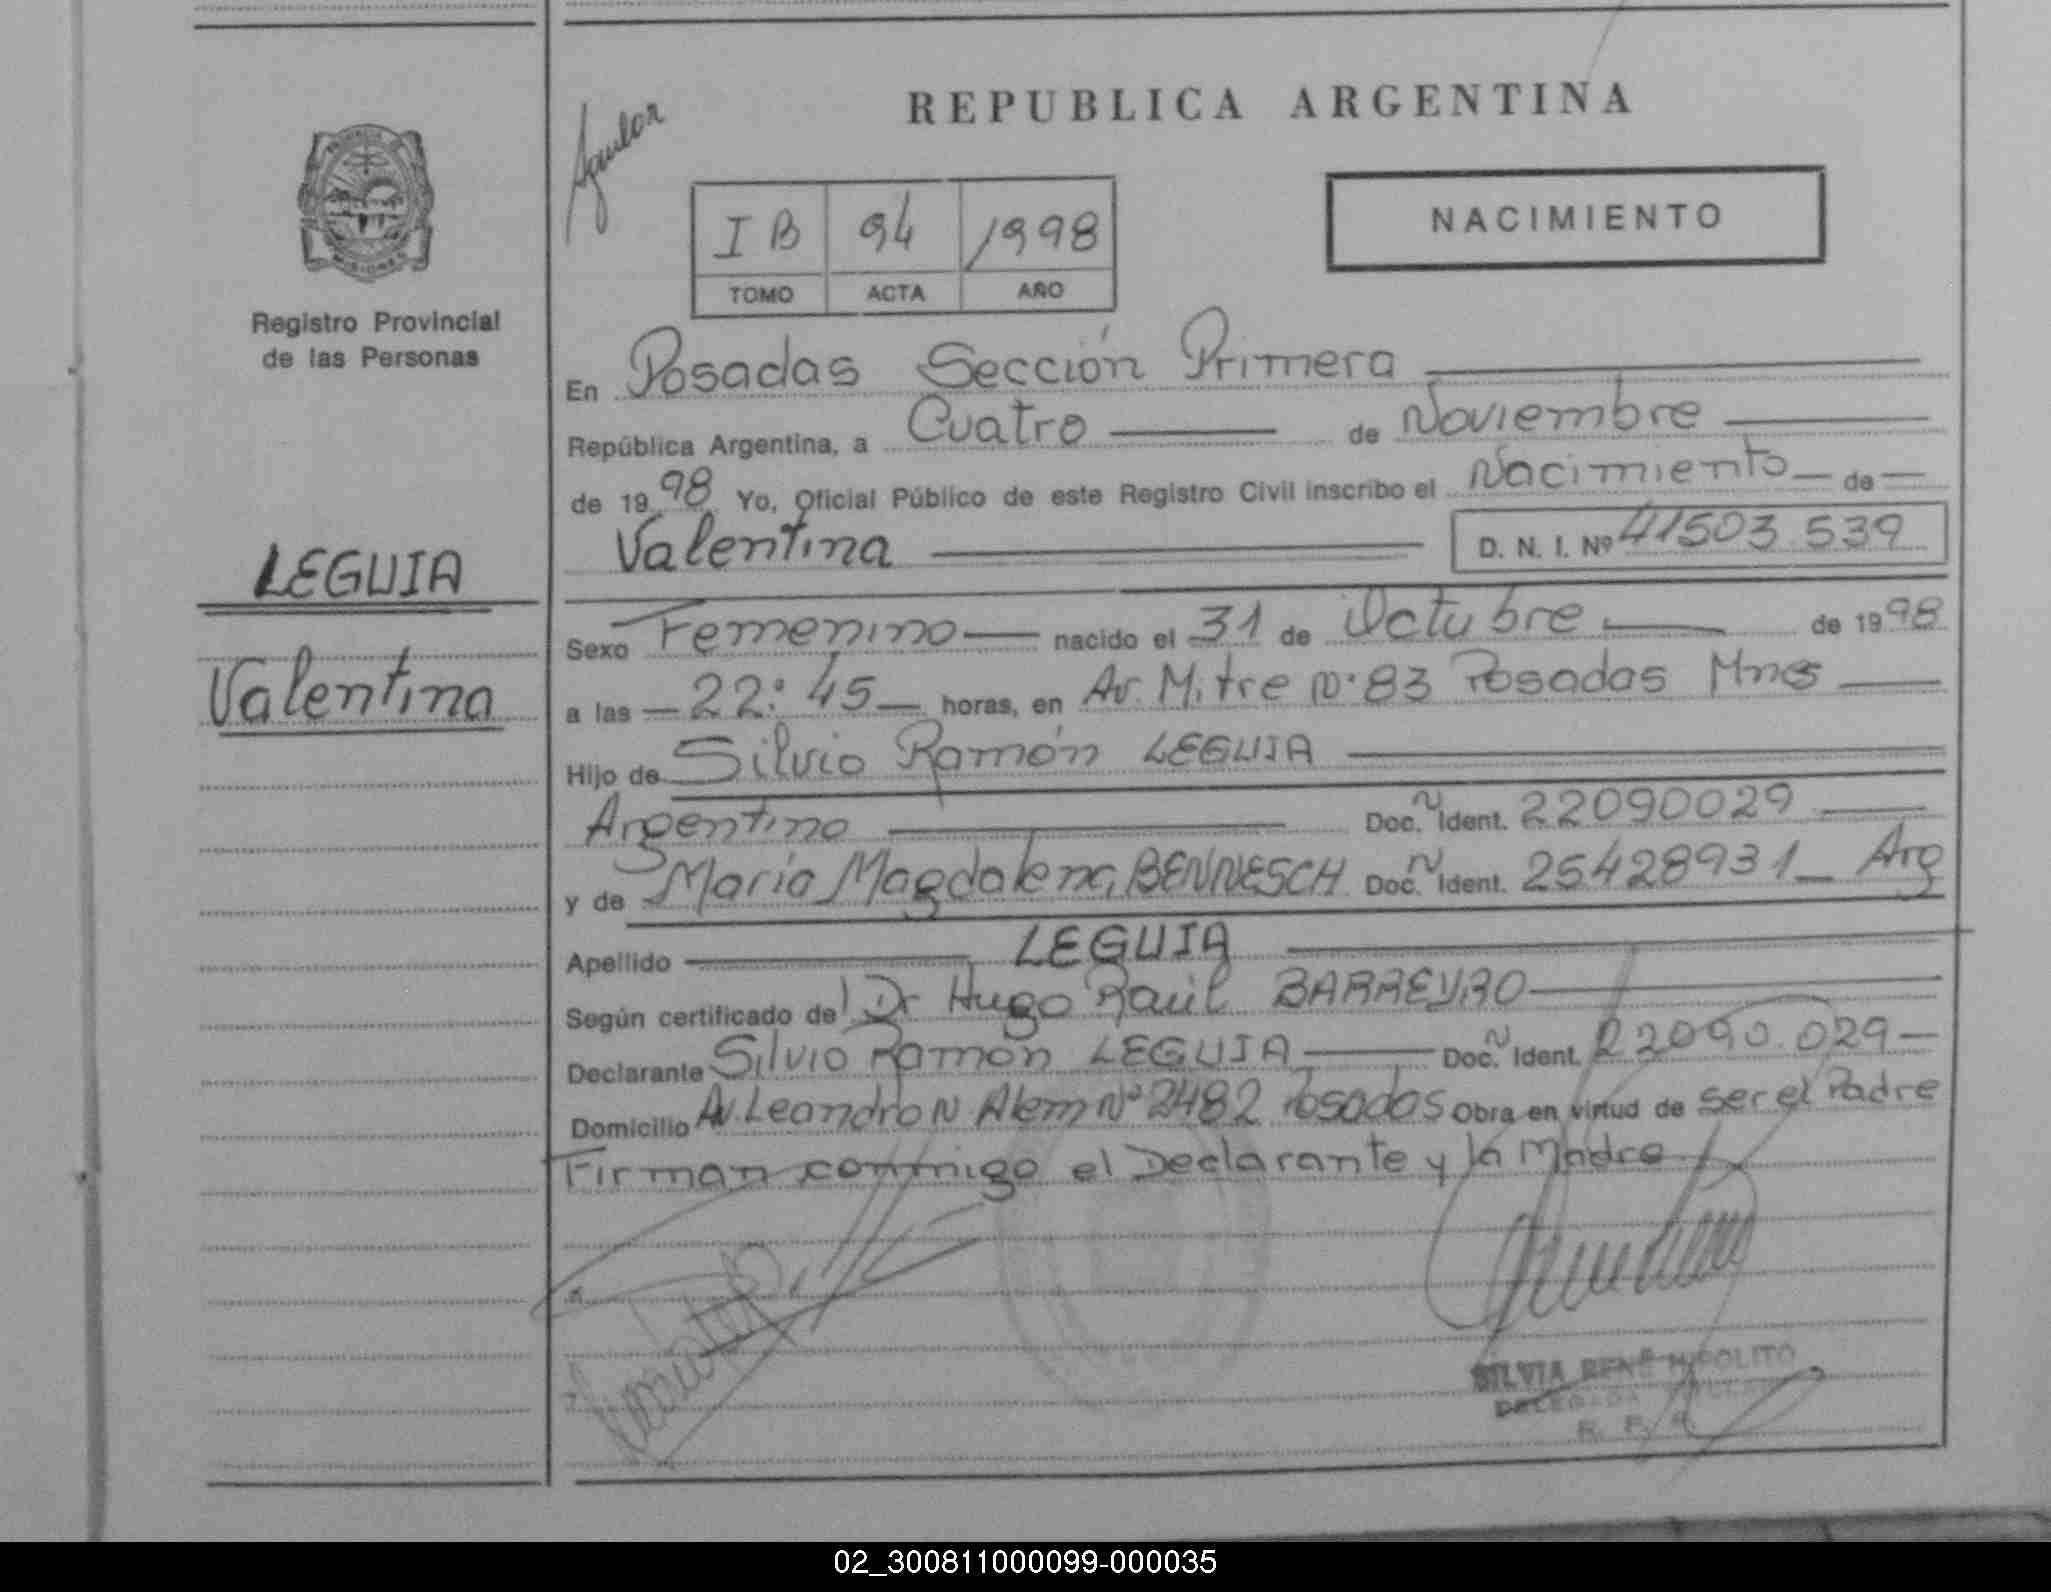 REPUBLICA ARGENTINA
Aguilar
PROVINCIA DE
MISIONES
Registro Provincial
de las Personas
IB 94 1998
TOMO ACTA AÑO
NACIMIENTO
En Posadas Sección Primera
República Argentina, a Cuatro de Noviembre
de 1998 Yo, Oficial Público de este Registro Civil inscribo el Nacimiento de
Valentina D. N. I. Nº 41503.539
LEGUIA
Valentina
Sexo Femenino nacido el 31 de Octubre de 1998
a las 22:45 horas, en Av. Mitre Nº 83 Posadas Mnes
Hijo de Silvio Ramón LEGUIA
Argentino Doc. Ident. 22090029
y de María Magdalena BENNESCH Doc. Ident. 25428931 Arg
Apellido LEGUIA
Según certificado del Dr Hugo Raúl BARREYRO
Declarante Silvio Ramón LEGUIA Doc. Ident. 22090.029
Domicilio Av. Leandro N Alem Nº 2482 Posadas Obra en virtud de ser el Padre
Firman conmigo el Declarante y la Madre
SILVIA RENÉ HIPOLITO
DELEGADA TITULAR
R. P. P.
02_300811000099-000035